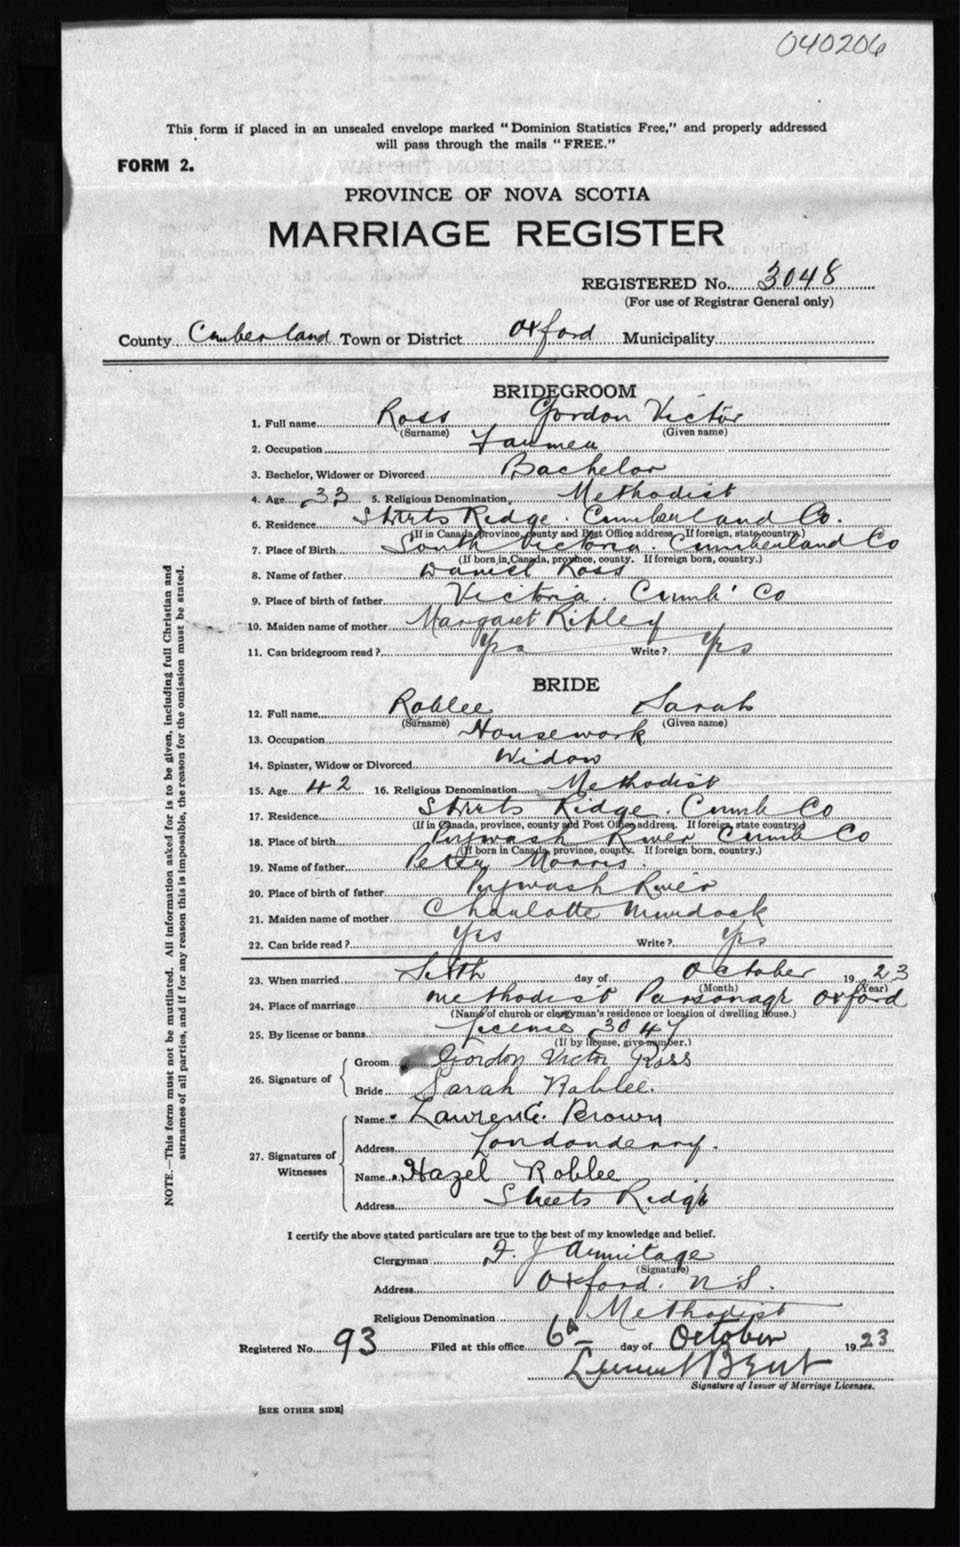 040206
This form if placed in an unsealed envelope marked "Dominion Statistics Free," and properly addressed
will pass through the mails "FREE."
FORM 2.
PROVINCE OF NOVA SCOTIA
MARRIAGE REGISTER
REGISTERED No. 3048
(For use of Registrar General only)
County Cumberland Town or District Oxford Municipality
BRIDEGROOM
1. Full name Ross Gordon Victor
(Surname) (Given name)
2. Occupation Farmer
3. Bachelor, Widower or Divorced Bachelor
4. Age 33 5. Religious Denomination Methodist
6. Residence Ridge. Cumberland Co.
(If in Canada, province, county and Post Office address. If foreign, state country.)
7. Place of Birth South Victoria Cumberland Co
(If born in Canada, province, county. If foreign born, country.)
8. Name of father Daniel Ross
9. Place of birth of father Victoria. Cumb' Co
10. Maiden name of mother Margaret Ripley
11. Can bridegroom read? Yes Write? Yes
BRIDE
12. Full name Roblee Sarah
(Surname) (Given name)
13. Occupation Housework
14. Spinster, Widow or Divorced Widow
15. Age 42 16. Religious Denomination Methodist
17. Residence Ridge. Cumb Co
(If in Canada, province, county and Post Office address. If foreign, state country.)
18. Place of birth Pugwash River Cumb Co
(If born in Canada, province, county. If foreign born, country.)
19. Name of father Peter Morris.
20. Place of birth of father Pugwash River
21. Maiden name of mother Charlotte Murdock
22. Can bride read? Yes Write? Yes
23. When married day of October 1923
(Month) (Year)
24. Place of marriage Methodist Parsonage Oxford
(Name of church or clergyman's residence or location of dwelling house.)
25. By license or banns License 3047
(If by license, give number.)
26. Signature of
Groom Gordon Victor Ross
Bride Sarah Roblee.
27. Signatures of Witnesses
Name Brown
Address Londonderry.
Name Hazel Roblee
Address Streets Ridge
I certify the above stated particulars are true to the best of my knowledge and belief.
Clergyman F. J Armitage
(Signature)
Address Oxford. N.S.
Religious Denomination Methodist
Registered No. 93 Filed at this office 6th day of October 1923
Bent
Signature of Issuer of Marriage Licenses.
[SEE OTHER SIDE]
NOTE.—This form must not be mutilated. All information asked for is to be given, including full Christian and
surnames of all parties, and if for any reason this is impossible, the reason for the omission must be stated.